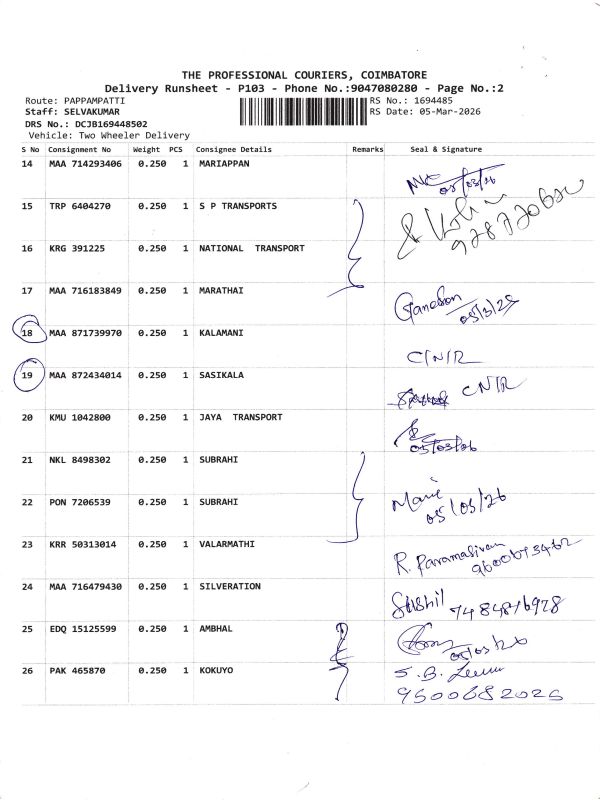 THE PROFESSIONAL COURIERS, COIMBATORE
Delivery Runsheet - P103 - Phone No.:9047080280 - Page No.:2
Route: PAPPAMPATTI RS No.: 1694485
Staff: SELVAKUMAR RS Date: 05-Mar-2026
DRS No.: DCJB169448502
Vehicle: Two Wheeler Delivery
S No Consignment No Weight PCS Consignee Details Remarks Seal & Signature
14 MAA 714293406 0.250 1 MARIAPPAN
05/03/26
15 TRP 6404270 0.250 1 S P TRANSPORTS
16 KRG 391225 0.250 1 NATIONAL TRANSPORT
17 MAA 716183849 0.250 1 MARATHAI
Ganeshan
18 MAA 871739970 0.250 1 KALAMANI
C/N/R
19 MAA 872434014 0.250 1 SASIKALA
C N/R
20 KMU 1042800 0.250 1 JAYA TRANSPORT
05/03/26
21 NKL 8498302 0.250 1 SUBRAHI
22 PON 7206539 0.250 1 SUBRAHI
05/03/26
23 KRR 50313014 0.250 1 VALARMATHI
R. Paramasivam
24 MAA 716479430 0.250 1 SILVERATION
Sushil
25 EDQ 15125599 0.250 1 AMBHAL
05/03/26
26 PAK 465870 0.250 1 KOKUYO
S. B.
9500682025